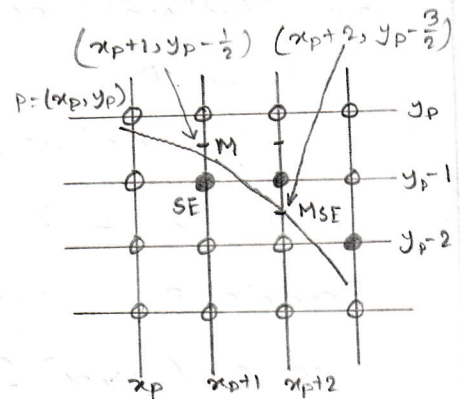 (xp+1, yp-1/2) (xp+2, yp-3/2)
P=(xp, yp)
yp
M
yp-1
SE
MSE
yp-2
xp xp+1 xp+2